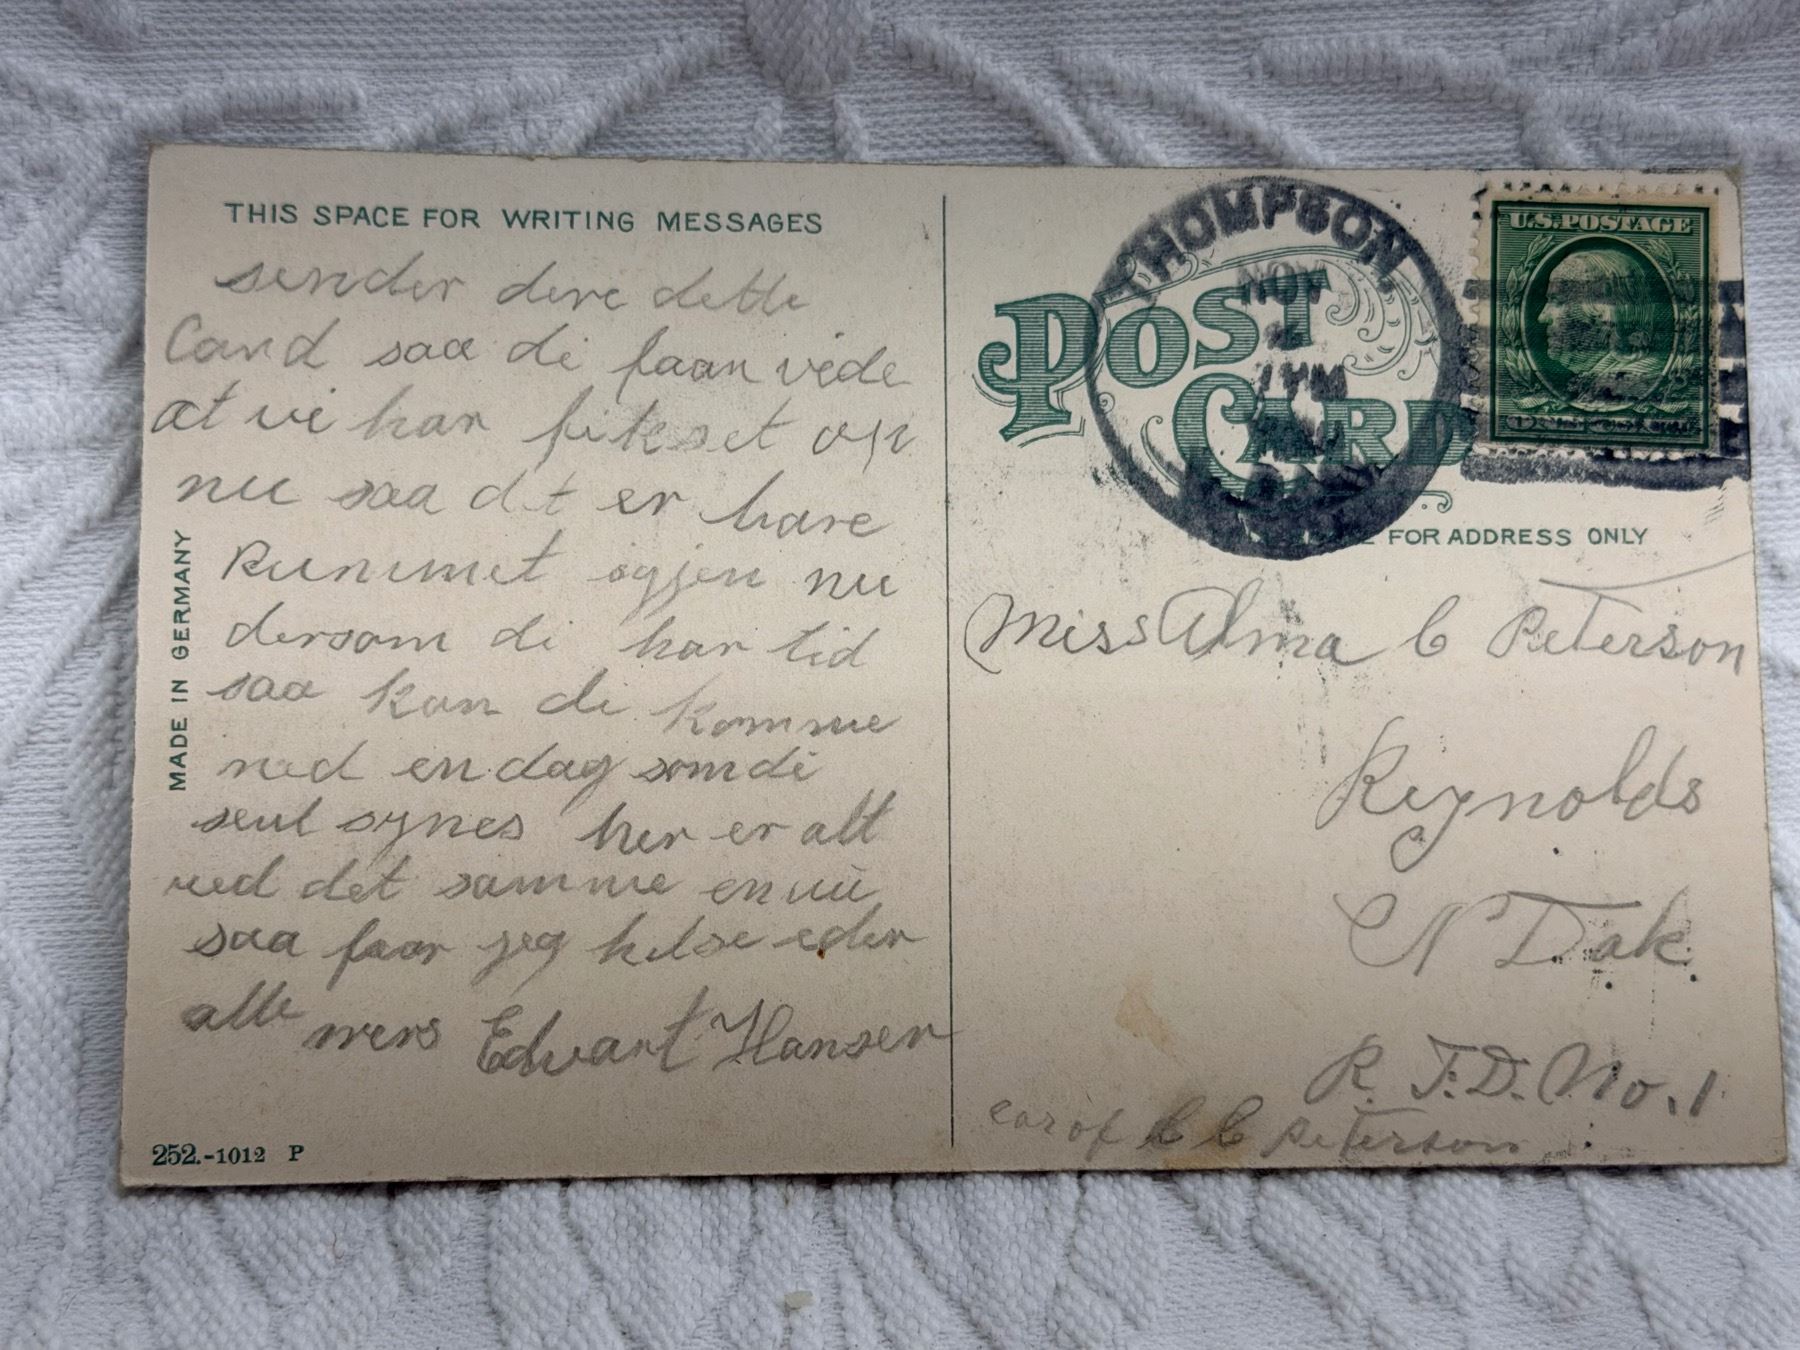 THIS SPACE FOR WRITING MESSAGES
sender dere dette
Card saa di faar vide
at vi har fikset op
nu saa dt er bare
kummet igjen nu
dersom di har tid
saa kan di komme
ned en dag som di
seul synes her er alt
ved det samme en nu
saa faar jeg helse eder
alle mers Edvart Hansen
MADE IN GERMANY
252.-1012 P
THOMPSON.
NOV
7 AM
U.S. POSTAGE
POST CARD
FOR ADDRESS ONLY
Miss Alma C Peterson
Reynolds
N Dak.
R. F.D. No. 1
car of C C Peterson